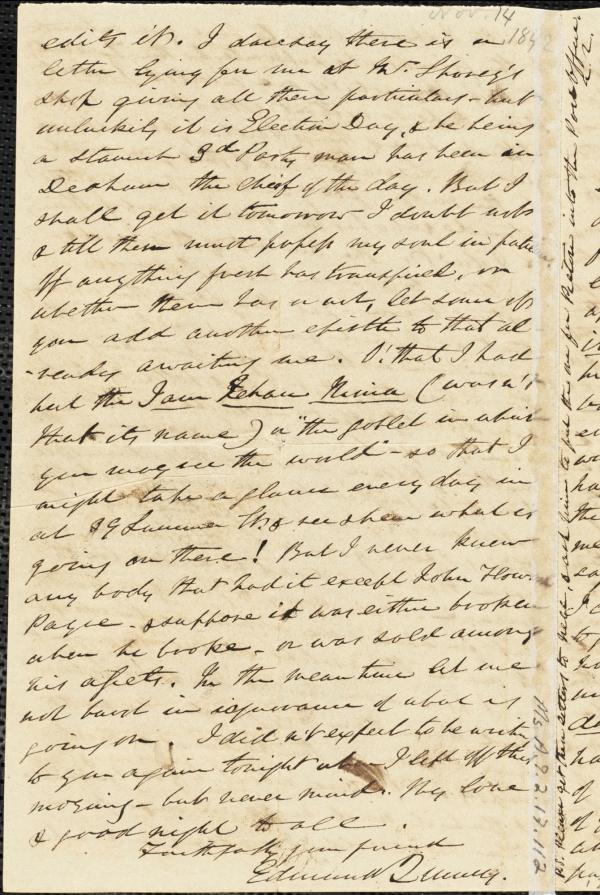 Nov. 14
1842
edits it. I daresay there is a
letter lying for me at Mr. Shorey's
shop giving all these particulars - but
unluckily it is Election Day, & he being
a staunch 3d Party man has been in
Dedham the chief of the day. But I
shall get it tomorrow I doubt not
& till then must possess my soul in
If anything fresh has transpired, or
whether there has or not, let some of
you add another epistle to that al-
ready awaiting me. O! that I had
but the Jam Jehan Nima (wasn't
that its name) or "the goblet in which
you may see the world" - so that I
might take a glance every day in
at 39 Summer St & see what is
going on there! But I never knew
any body that had it except John How
Payne - & suppose it was either broken
when he broke - or was sold among
his assets. In the mean time let me
not burst in ignorance of what is
going on. I did n't expect to be writing
to you again tonight when I left off this
morning - but never mind. My love
& good night to all.
Faithfully your friend
Edmund Quincy.
Ms. A. 9. 2. 17. 112